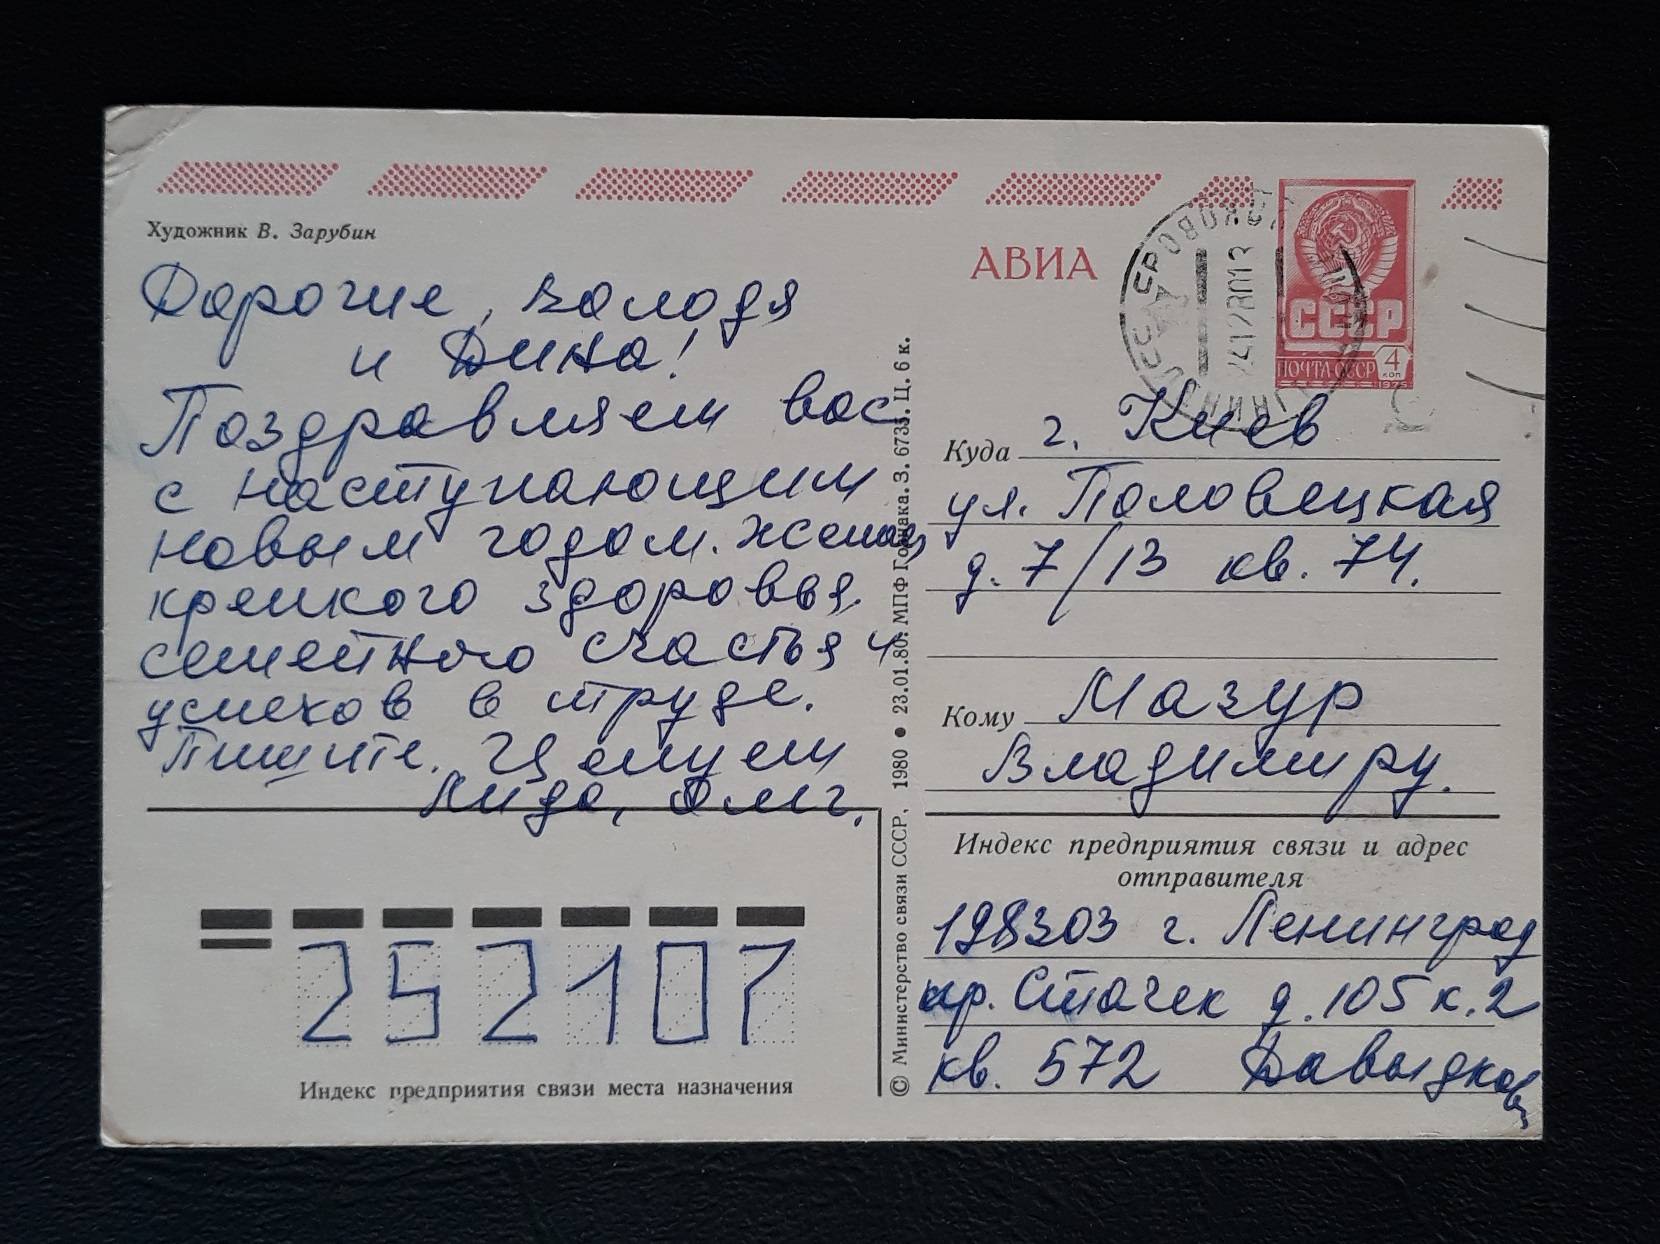 Художник В. Зарубин
АВИА
СССР
ПОЧТА СССР 4 КОП
1975
Дорогие, Володя
и Дина!
Поздравляем вас
с наступающим
новым годом. Желаем
крепкого здоровья,
семейного счастья и
успехов в труде.
Пишите. Целуем
Лида, Олег.
Куда г. Киев
ул. Половецкая
д. 7/13 кв. 74.
Кому Мазур
Владимиру.
Индекс предприятия связи и адрес
отправителя
198303 г. Ленинград
пр. Стачек д. 105 к. 2
кв. 572 Давыдковы
252107
Индекс предприятия связи места назначения
© Министерство связи СССР, 1980 • 23.01.80. МПФ Гознака. З. 6735. Ц. 6 к.